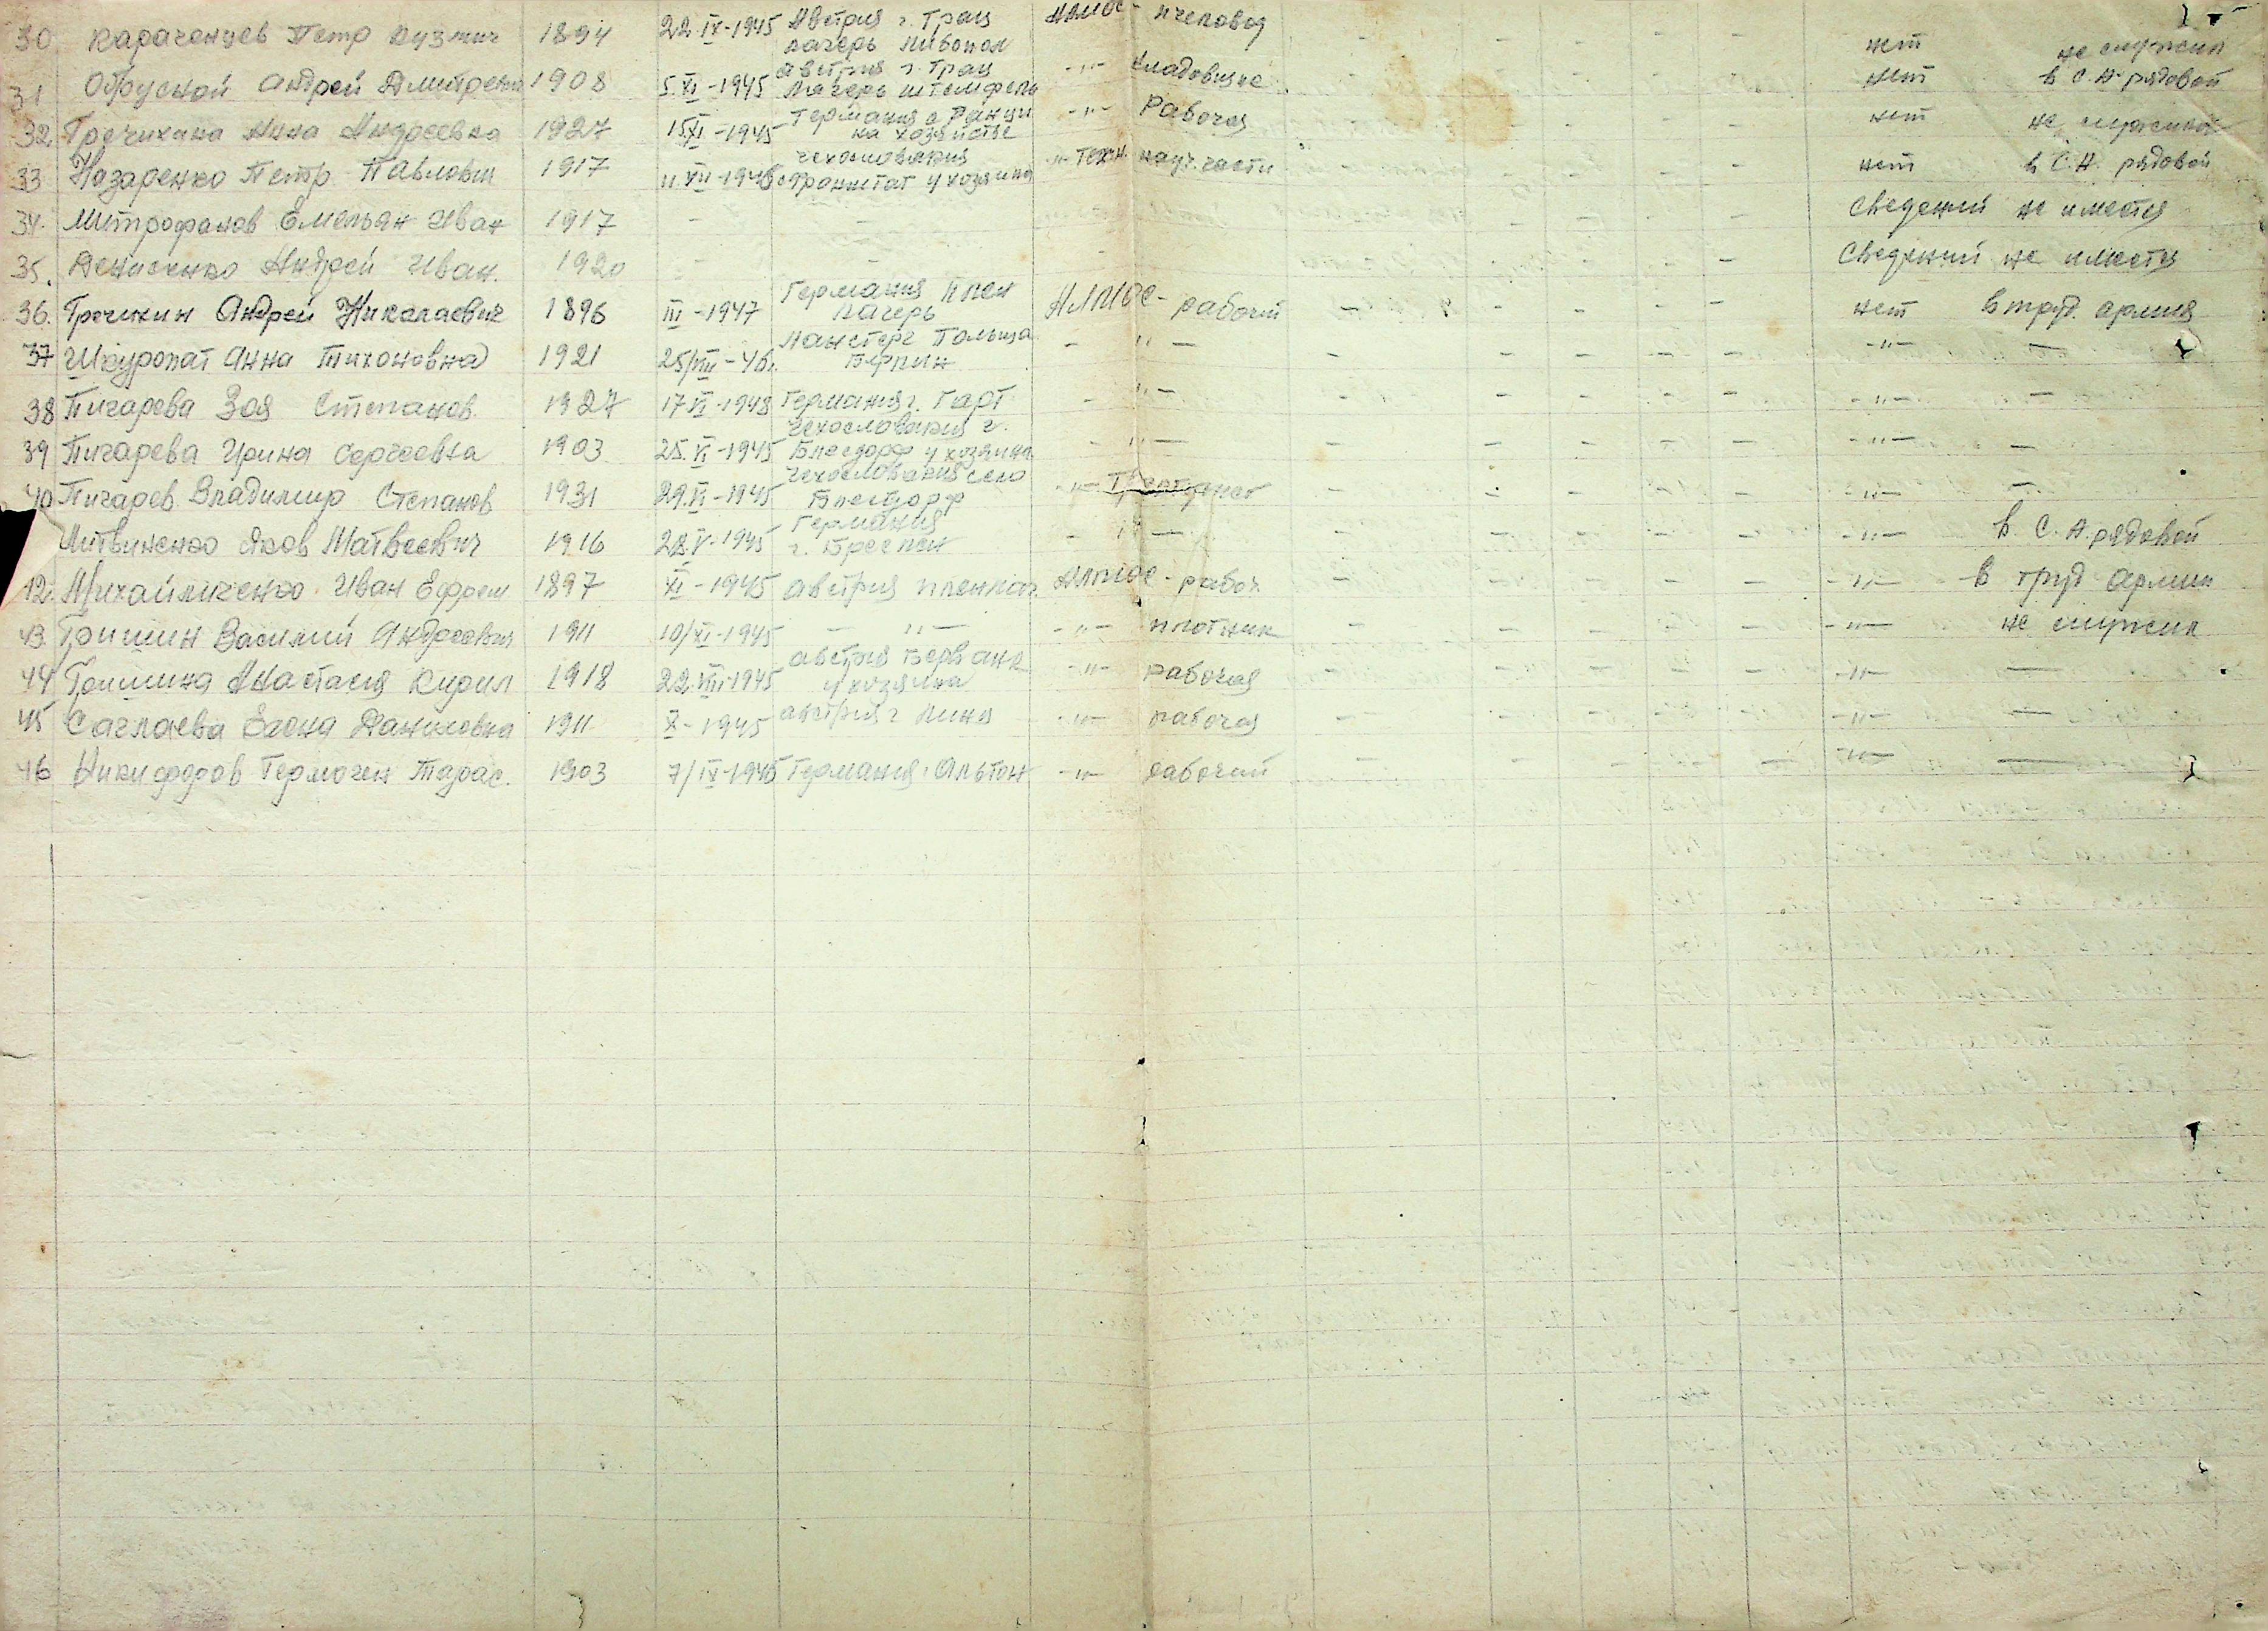 30 Караченцев Петр Кузмич 1894 22 IX-1945 Австрия г. Грац лагерь АЛПОС- пчеловод - - - - - - нет не служил
31 Обруской Андрей Дмитреви 1908 5.XI-1945 Австрия г. Грац лагерь штемфель -"- Кладовщик - - - - - - нет в С.А. рядовой
32. Гречихина Анна Андреевна 1927 15 XI-1945 Германия на хозяйстве -"- Рабочая - - - - - - нет не служила
33 Назаренко Петр Павлович 1917 11.XII-1945 Чехословакия у хозяина -"- Техн. науч. части - - - - - - нет в С.А. рядовой
34. Митрофанов Емельян Иван 1917 - - Сведений не имеется
35. Денисенко Андрей Иван. 1920 - - - Сведений не имеется
36. Гречихин Андрей Николаевич 1896 III-1947 Германия плен лагерь АЛПОС- рабочий - - - - - - нет в труд. армия
37 Шкуропат Анна Тихоновна 1921 25/VIII-46г. Польша Берлин - "- - - - - - - -"- —
38 Пигарева Зоя Степанов. 1927 17 VI-1948 Германия г. Гарт - "- - - - - - - -"- —
39 Пигарева Ирина Сергеевна 1903 25.VI-1945 Чехословакия г. у хозяина - "- - - - - - - -"- —
40 Пигарев Владимир Степанов 1931 29.VI-1945 Чехословакия село -"- - - - - - - -"- —
Литвиненко Яков Матвеевич 1916 28.V-1945 Германия г. Бреслен - "- - - - - - - -"- в С.А. рядовой
42. Михайличенко Иван Ефрем 1897 XI-1945 Австрия пленлаг. АЛПОС- рабоч. - - - - - - -"- в труд армии
43 Гришин Василий Андреевич 1911 10/XI-1945 - "- -"- плотник - - - - - - -"- не служил
44 Гришина Анастасия Кирил 1918 22.VIII-1945 Австрия у хозяина -"- рабочая - - - - - - -"- —
45 Саглаева Елена Даниловна 1911 X-1945 Австрия г Линц -"- рабочая - - - - - - -"- —
46 Никифоров Гермоген Тарас. 1903 7/IX-1945 Германия. Альтон -"- рабочий - - - - - - -"- —